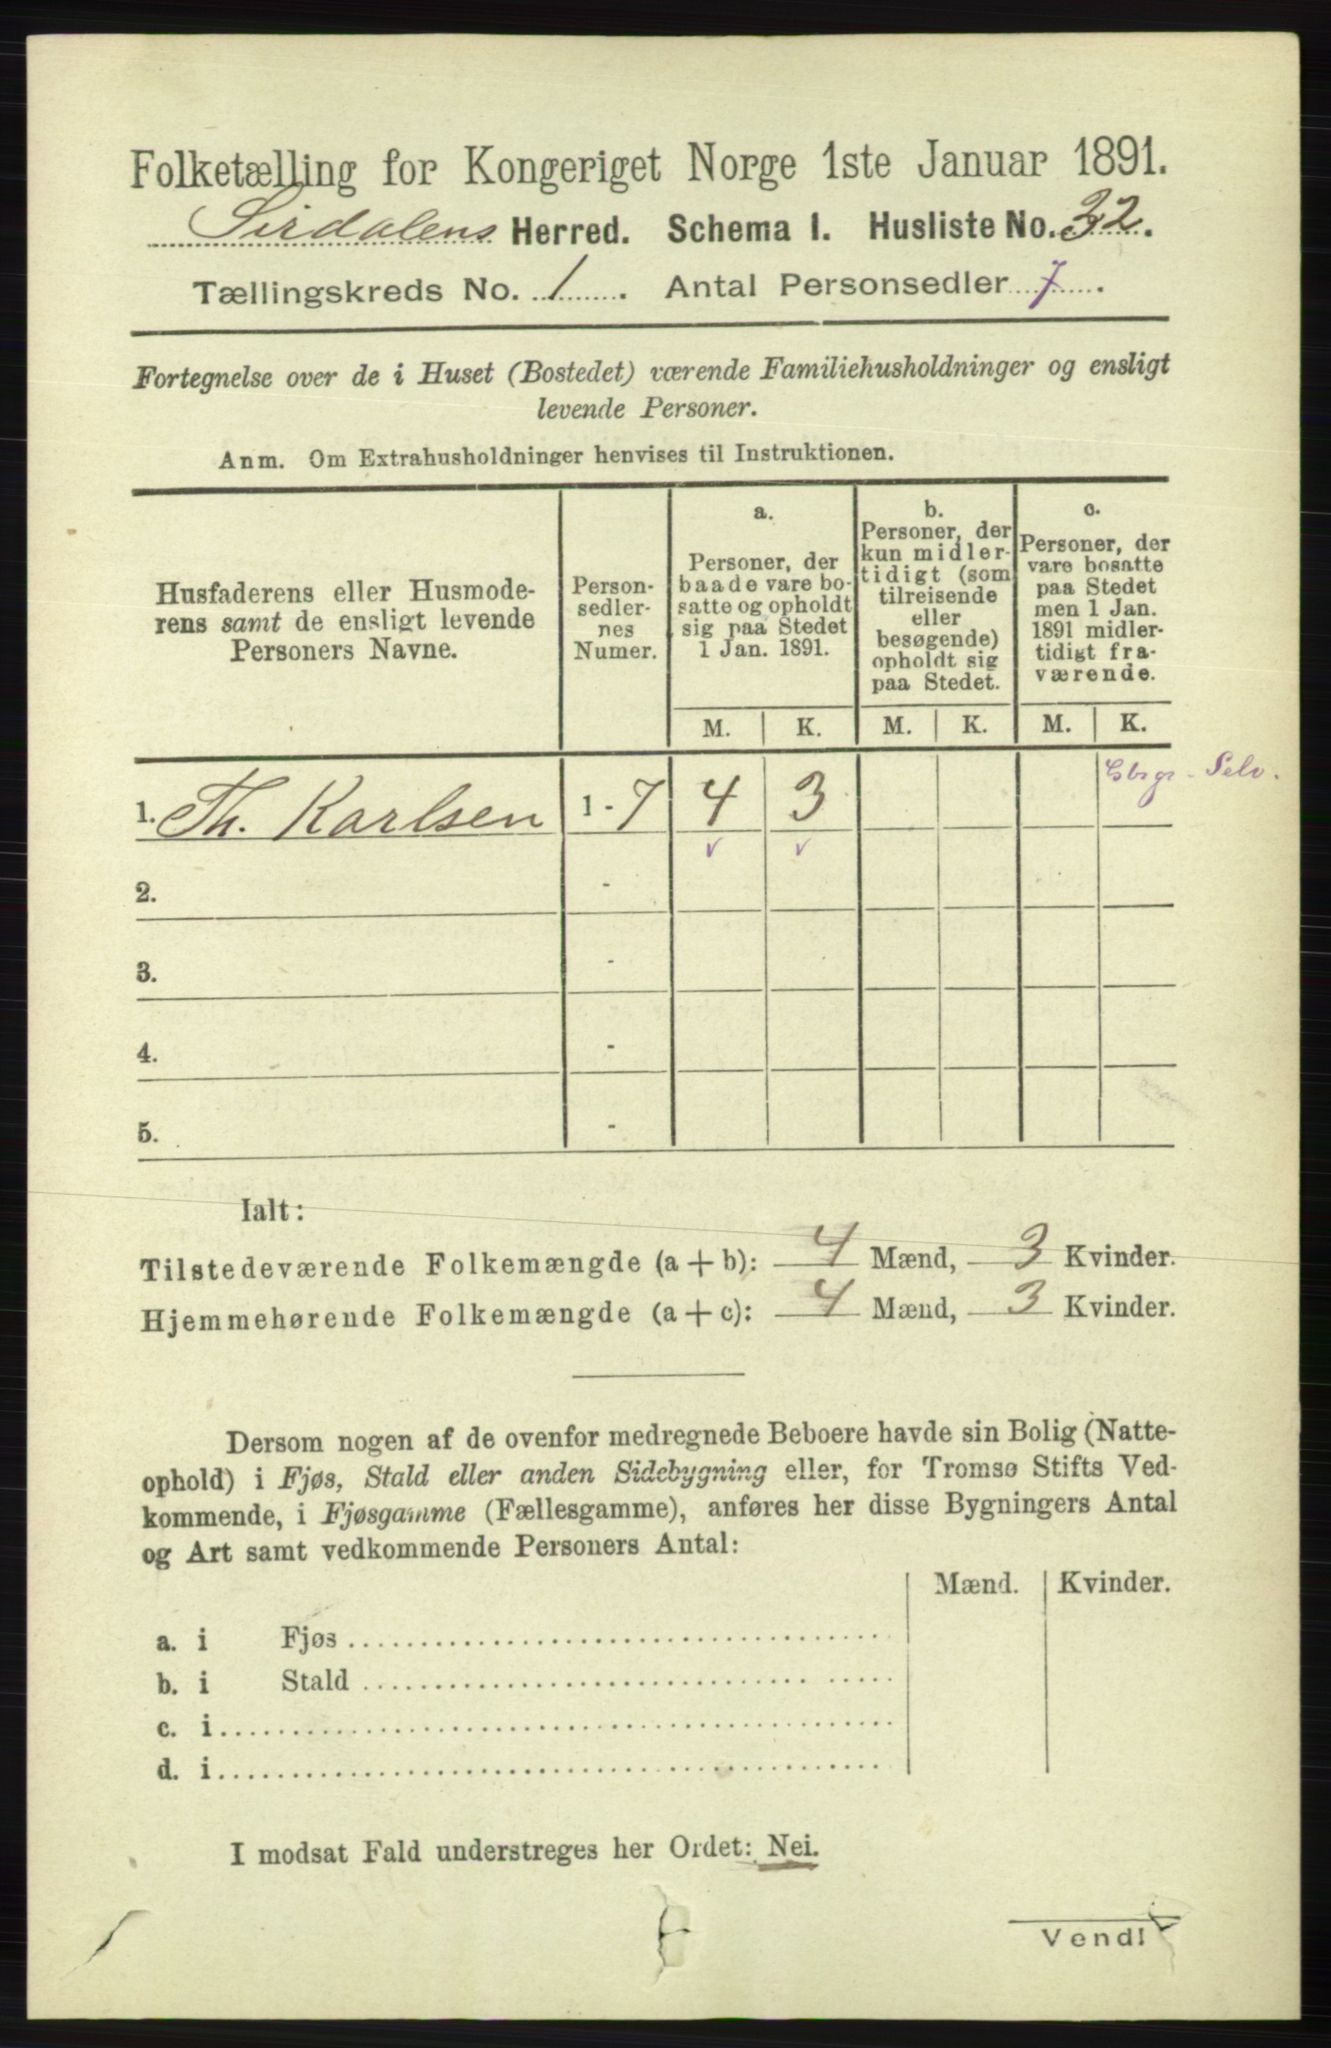 Folketælling for Kongeriget Norge 1ste Januar 1891.
Sirdalens Herred. Schema I. Husliste No. 32.
Tællingskreds No. 1. Antal Personsedler 7.
Fortegnelse over de i Huset (Bostedet) værende Familiehusholdninger og ensligt
levende Personer.
Anm. Om Extrahusholdninger henvises til Instruktionen.
Husfaderens eller Husmode-
rens samt de ensligt levende
Personers Navne.
Person-
sedler-
nes
Numer.
a.
Personer, der
baade vare bo-
satte og opholdt
sig paa Stedet
1 Jan. 1891.
b.
Personer, der
kun midler-
tidigt (som
tilreisende
eller
besøgende)
opholdt sig
paa Stedet.
c.
Personer, der
vare bosatte
paa Stedet
men 1 Jan.
1891 midler-
tidigt fra-
værende.
M. K. M. K. M. K.
Gbrgr. Selv.
1. Th. Karlsen 1 - 7 4 3
2. -
3. -
4. -
5. -
Ialt:
Tilstedeværende Folkemængde (a + b): 4 Mænd, 3 Kvinder.
Hjemmehørende Folkemængde (a + c): 4 Mænd, 3 Kvinder.
Dersom nogen af de ovenfor medregnede Beboere havde sin Bolig (Natte-
ophold) i Fjøs, Stald eller anden Sidebygning eller, for Tromsø Stifts Ved-
kommende, i Fjøsgamme (Fællesgamme), anføres her disse Bygningers Antal
og Art samt vedkommende Personers Antal:
Mænd. Kvinder.
a. i Fjøs
b. i Stald
c. i
d. i
I modsat Fald understreges her Ordet: Nei.
Vend!